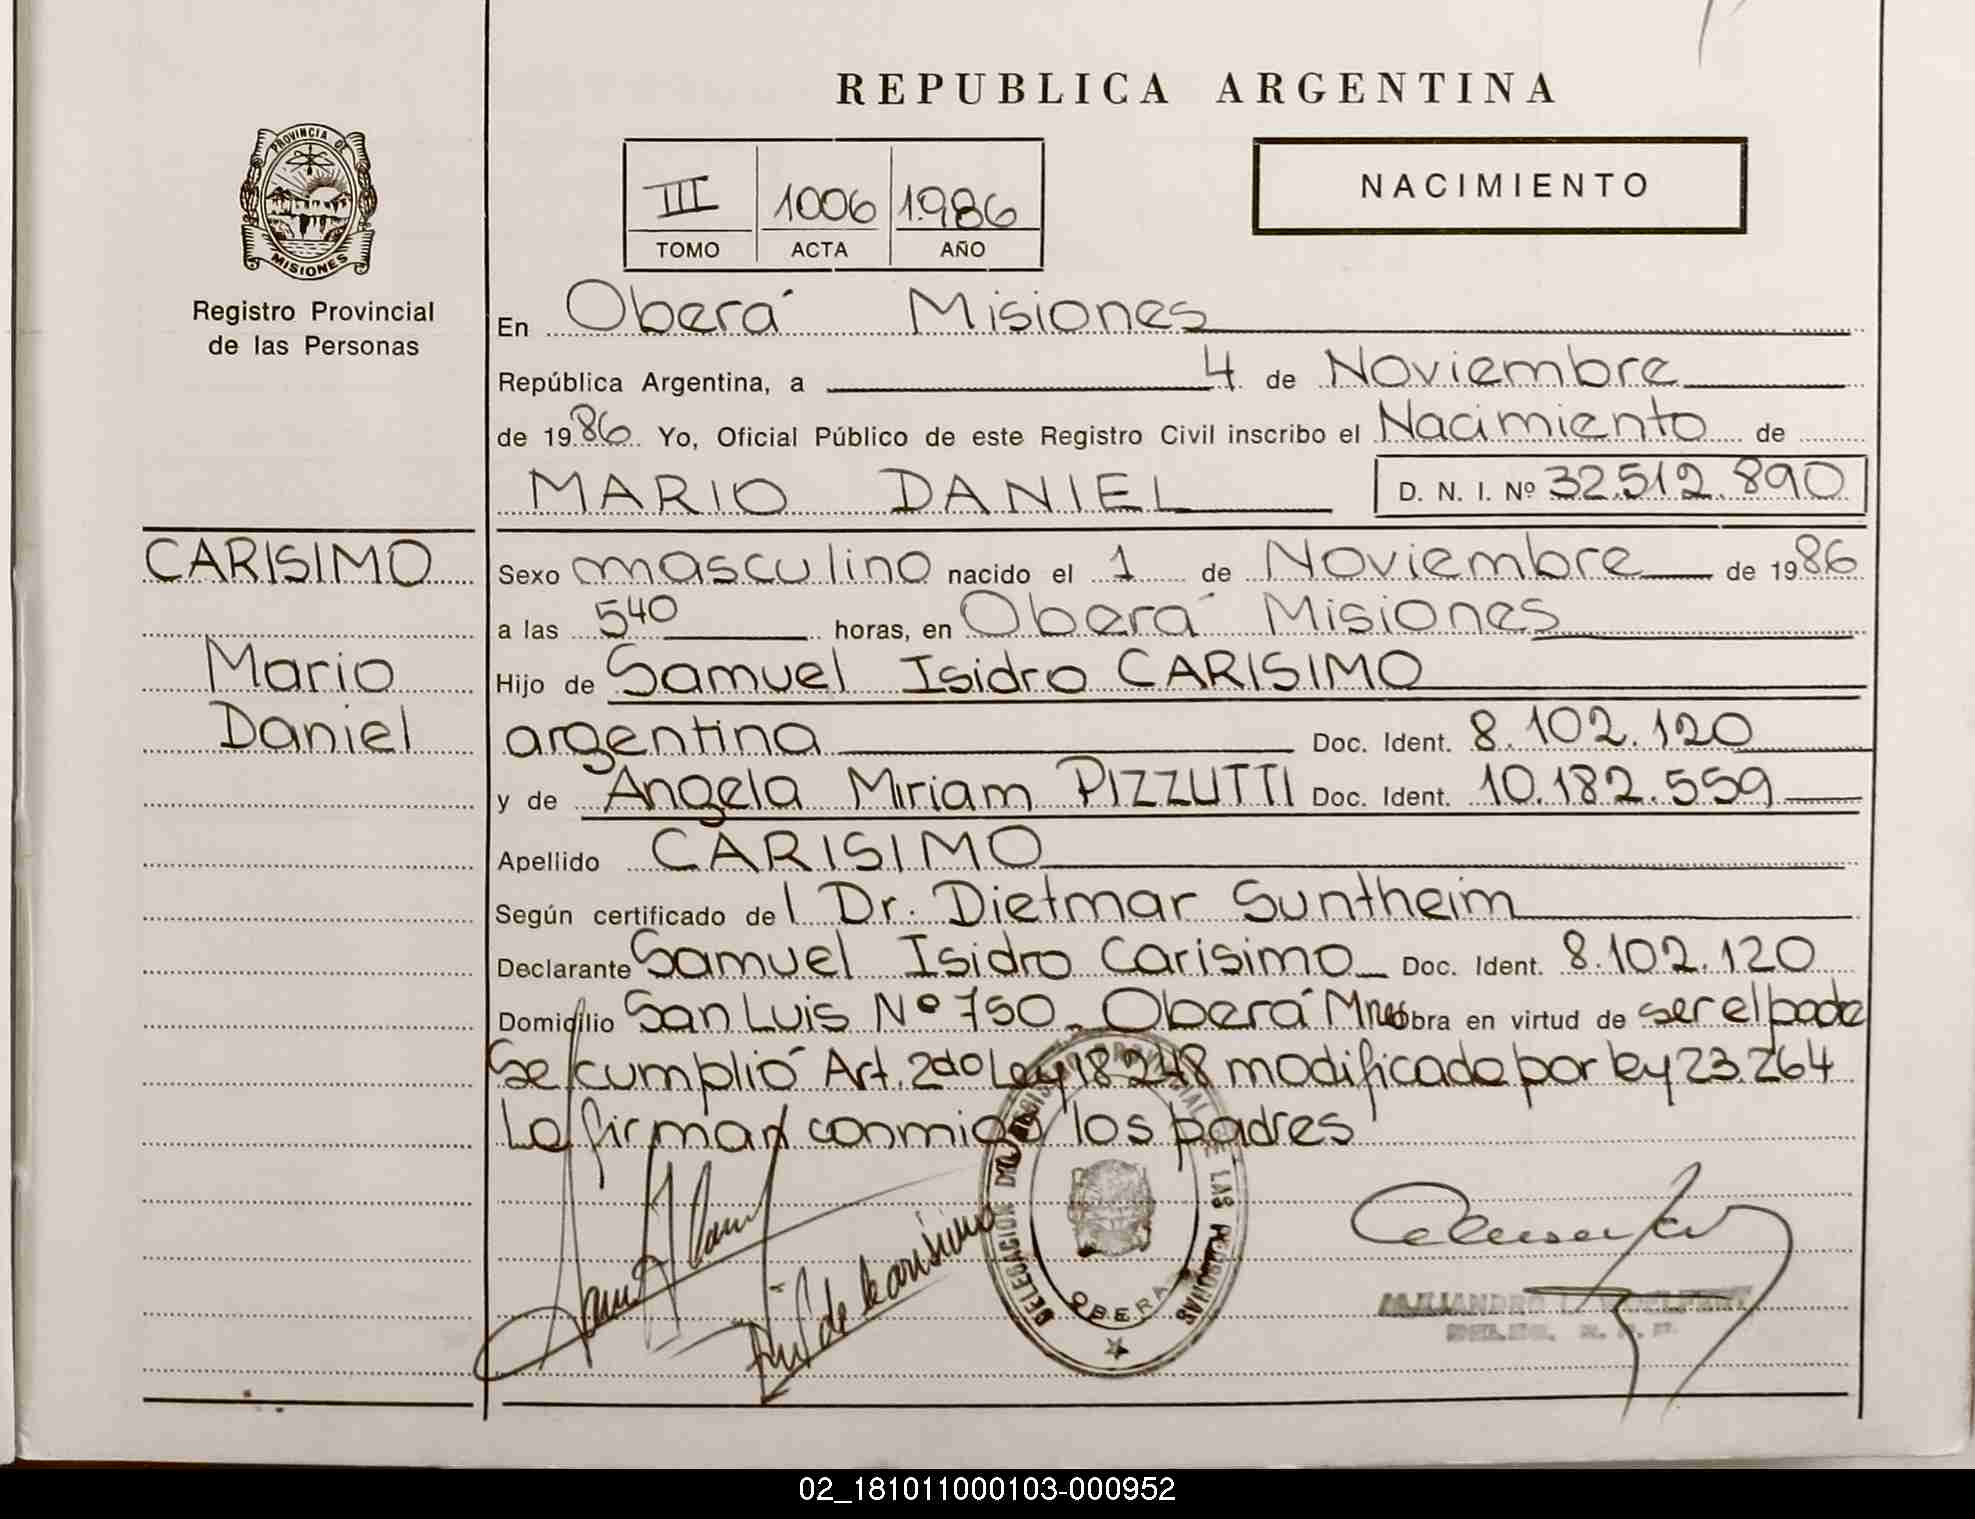 REPUBLICA ARGENTINA
PROVINCIA DE
MISIONES
Registro Provincial
de las Personas
III 1006 1986
TOMO ACTA AÑO
NACIMIENTO
En Oberá Misiones
República Argentina, a 4 de Noviembre
de 1986 Yo, Oficial Público de este Registro Civil inscribo el Nacimiento de
MARIO DANIEL D. N. I. Nº 32.512.890
CARISIMO
Mario
Daniel
Sexo masculino nacido el 1 de Noviembre de 1986
a las 540 horas, en Oberá Misiones
Hijo de Samuel Isidro CARISIMO
argentina Doc. Ident. 8.102.120
y de Angela Miriam PIZZUTTI Doc. Ident. 10.182.559
Apellido CARISIMO
Según certificado del Dr. Dietmar Suntheim
Declarante Samuel Isidro Carisimo Doc. Ident. 8.102.120
Domicilio San Luis Nº 750 Oberá Mnes obra en virtud de ser el padre
Se cumplió Art. 2do Ley 18248 modificado por ley 23.264
Lo firman conmigo los padres
de Carisimo
DELEGACION DEL REGISTRO PROVINCIAL DE LAS PERSONAS
OBERA
02_181011000103-000952